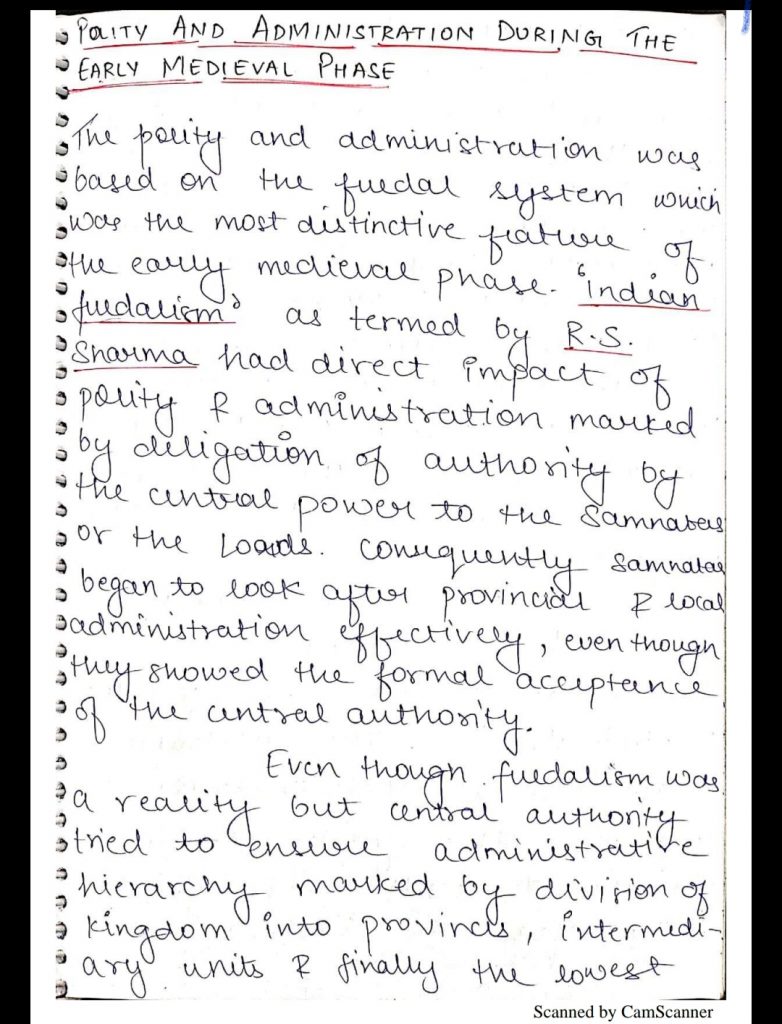 POLITY AND ADMINISTRATION DURING THE
EARLY MEDIEVAL PHASE
The polity and administration was
based on the fuedal system which
was the most distinctive feature of
the early medieval phase. 'Indian
fuedalism' as termed by R.S.
Sharma had direct impact of
polity & administration marked
by deligation of authority by
the central power to the Samnatas
or the Loards. Consequently Samnatas
began to look after provincial & local
administration effectively, even though
they showed the formal acceptance
of the central authority.
Even though fuedalism was
a reality but central authority
tried to ensure administrative
hierarchy marked by division of
kingdom into provinces, intermedi-
ary units & finally the lowest
Scanned by CamScanner